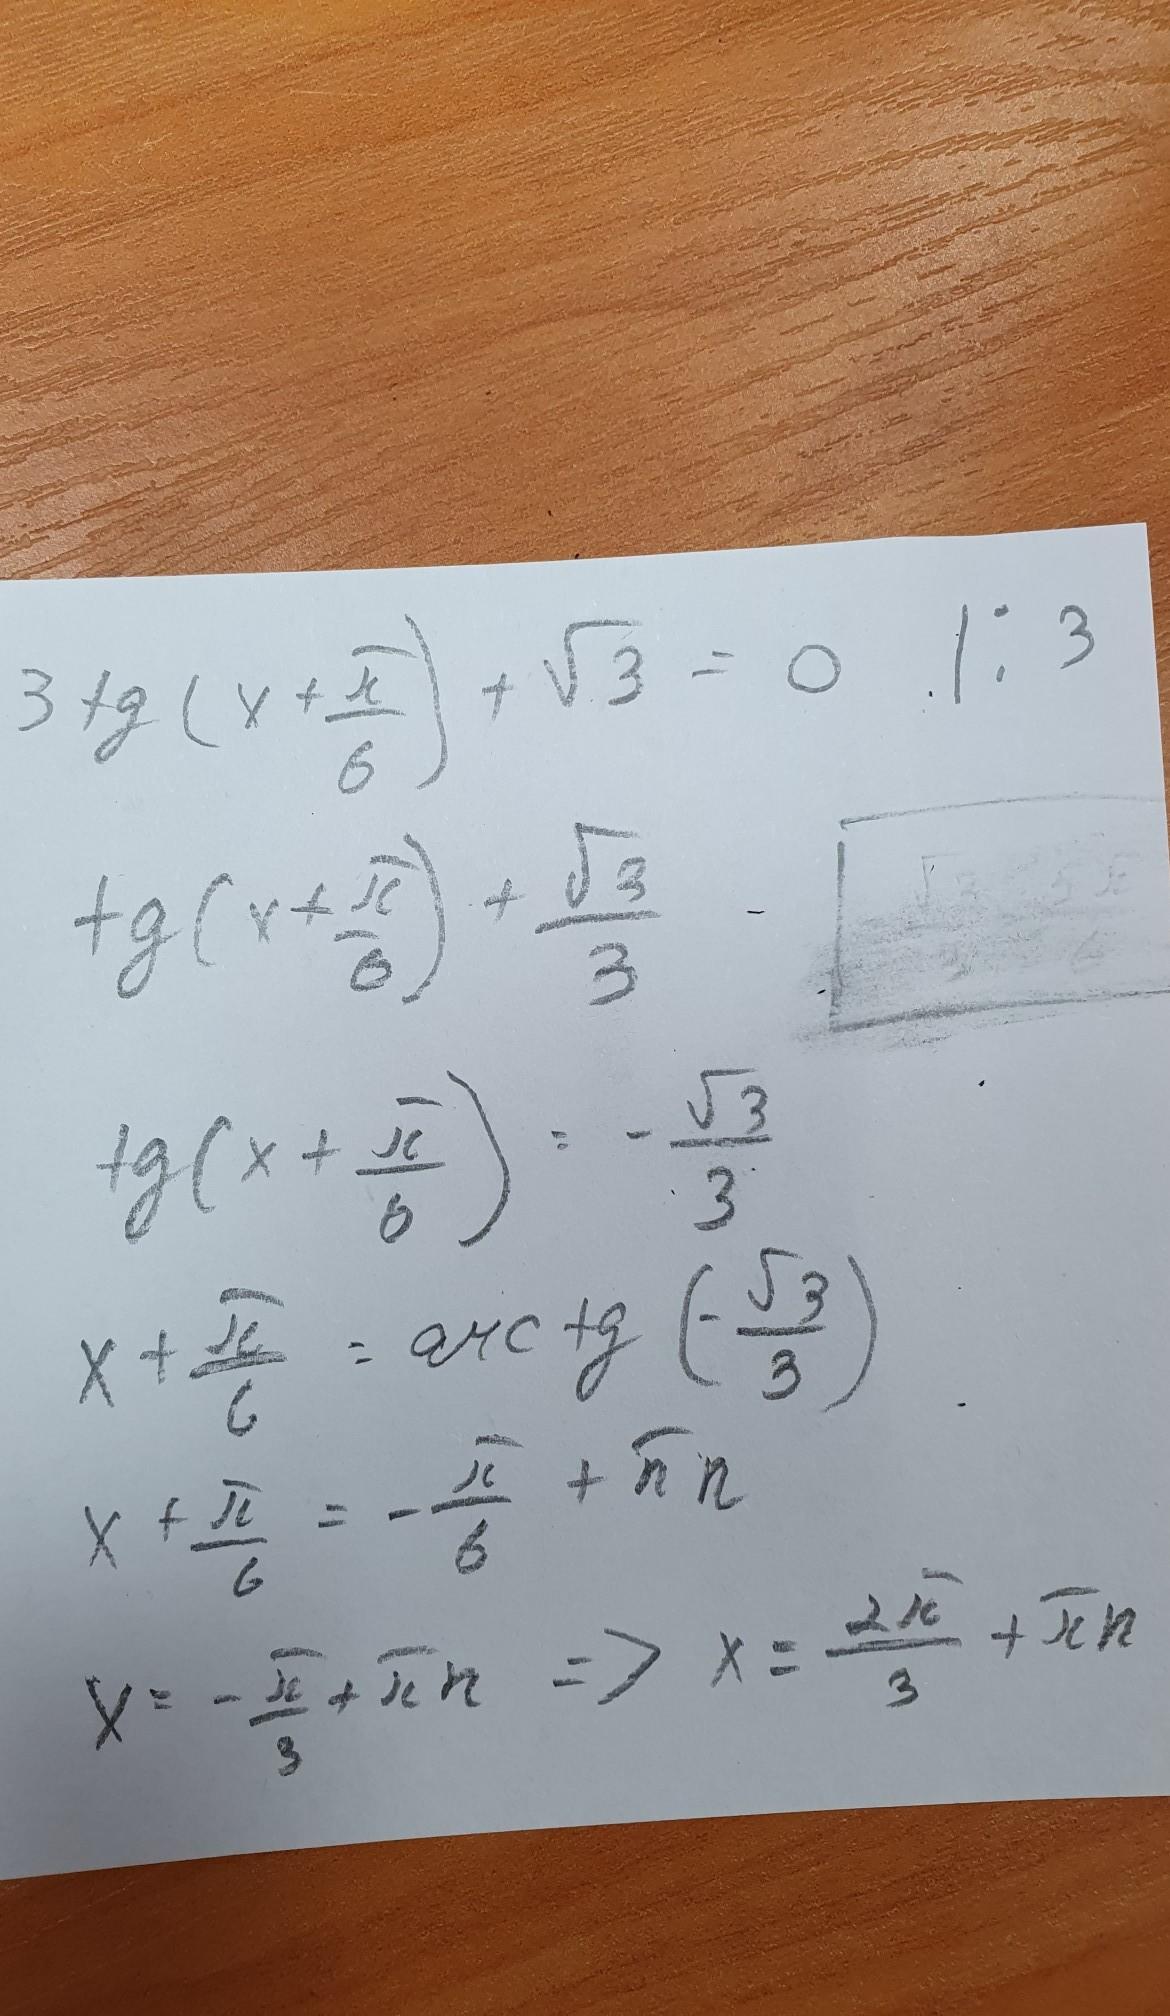 3 tg(x + π/6) + √3 = 0 |: 3
tg(x + π/6) + √3/3 -
tg(x + π/6) = - √3/3
x + π/6 = arc tg (- √3/3)
x + π/6 = - π/6 + πn
x = - π/3 + πn => x = 2π/3 + πn